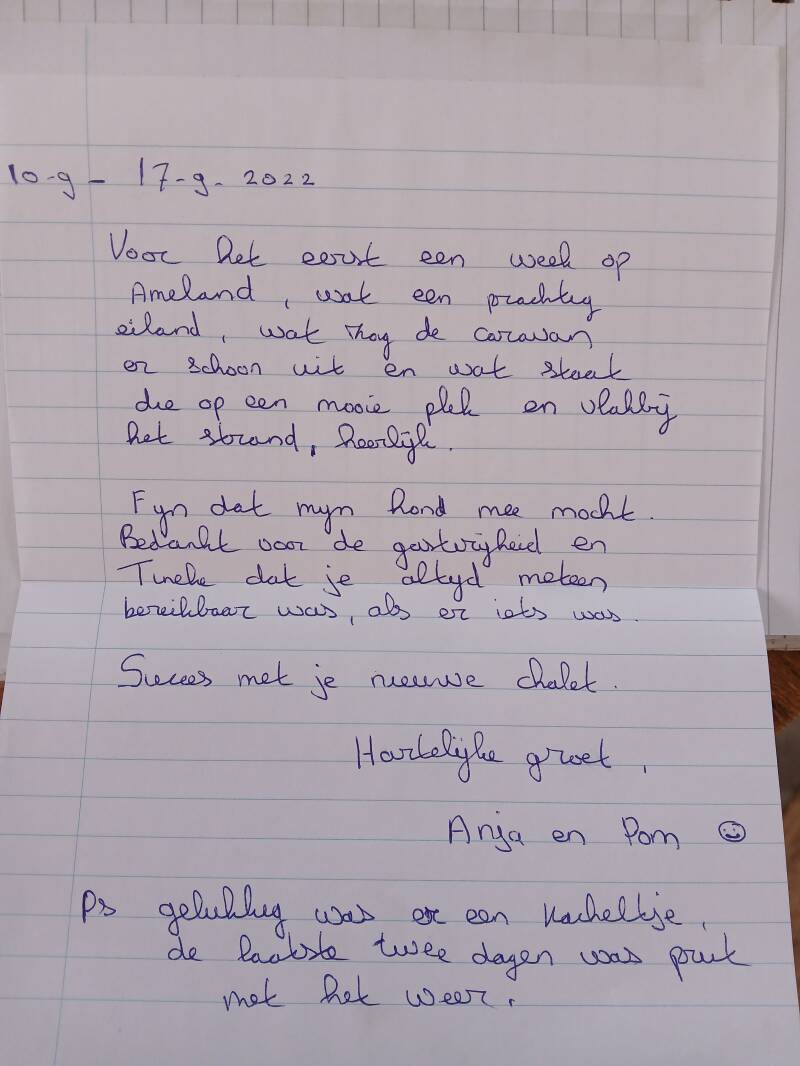 10-9 - 17-9-2022
Voor het eerst een week op
Ameland, wat een prachtig
eiland, wat zag de caravan
er schoon uit en wat staat
die op een mooie plek en vlakbij
het strand, heerlijk.
Fyn dat myn hond mee mocht.
Bedankt voor de gastvrijheid en
Tineke dat je altyd meteen
bereikbaar was, als er iets was.
Succes met je nieuwe chalet.
Hartelijke groet,
Anja en Pom ☺
Ps gelukkig was er een kacheltje,
de laatste twee dagen was prut
met het weer.